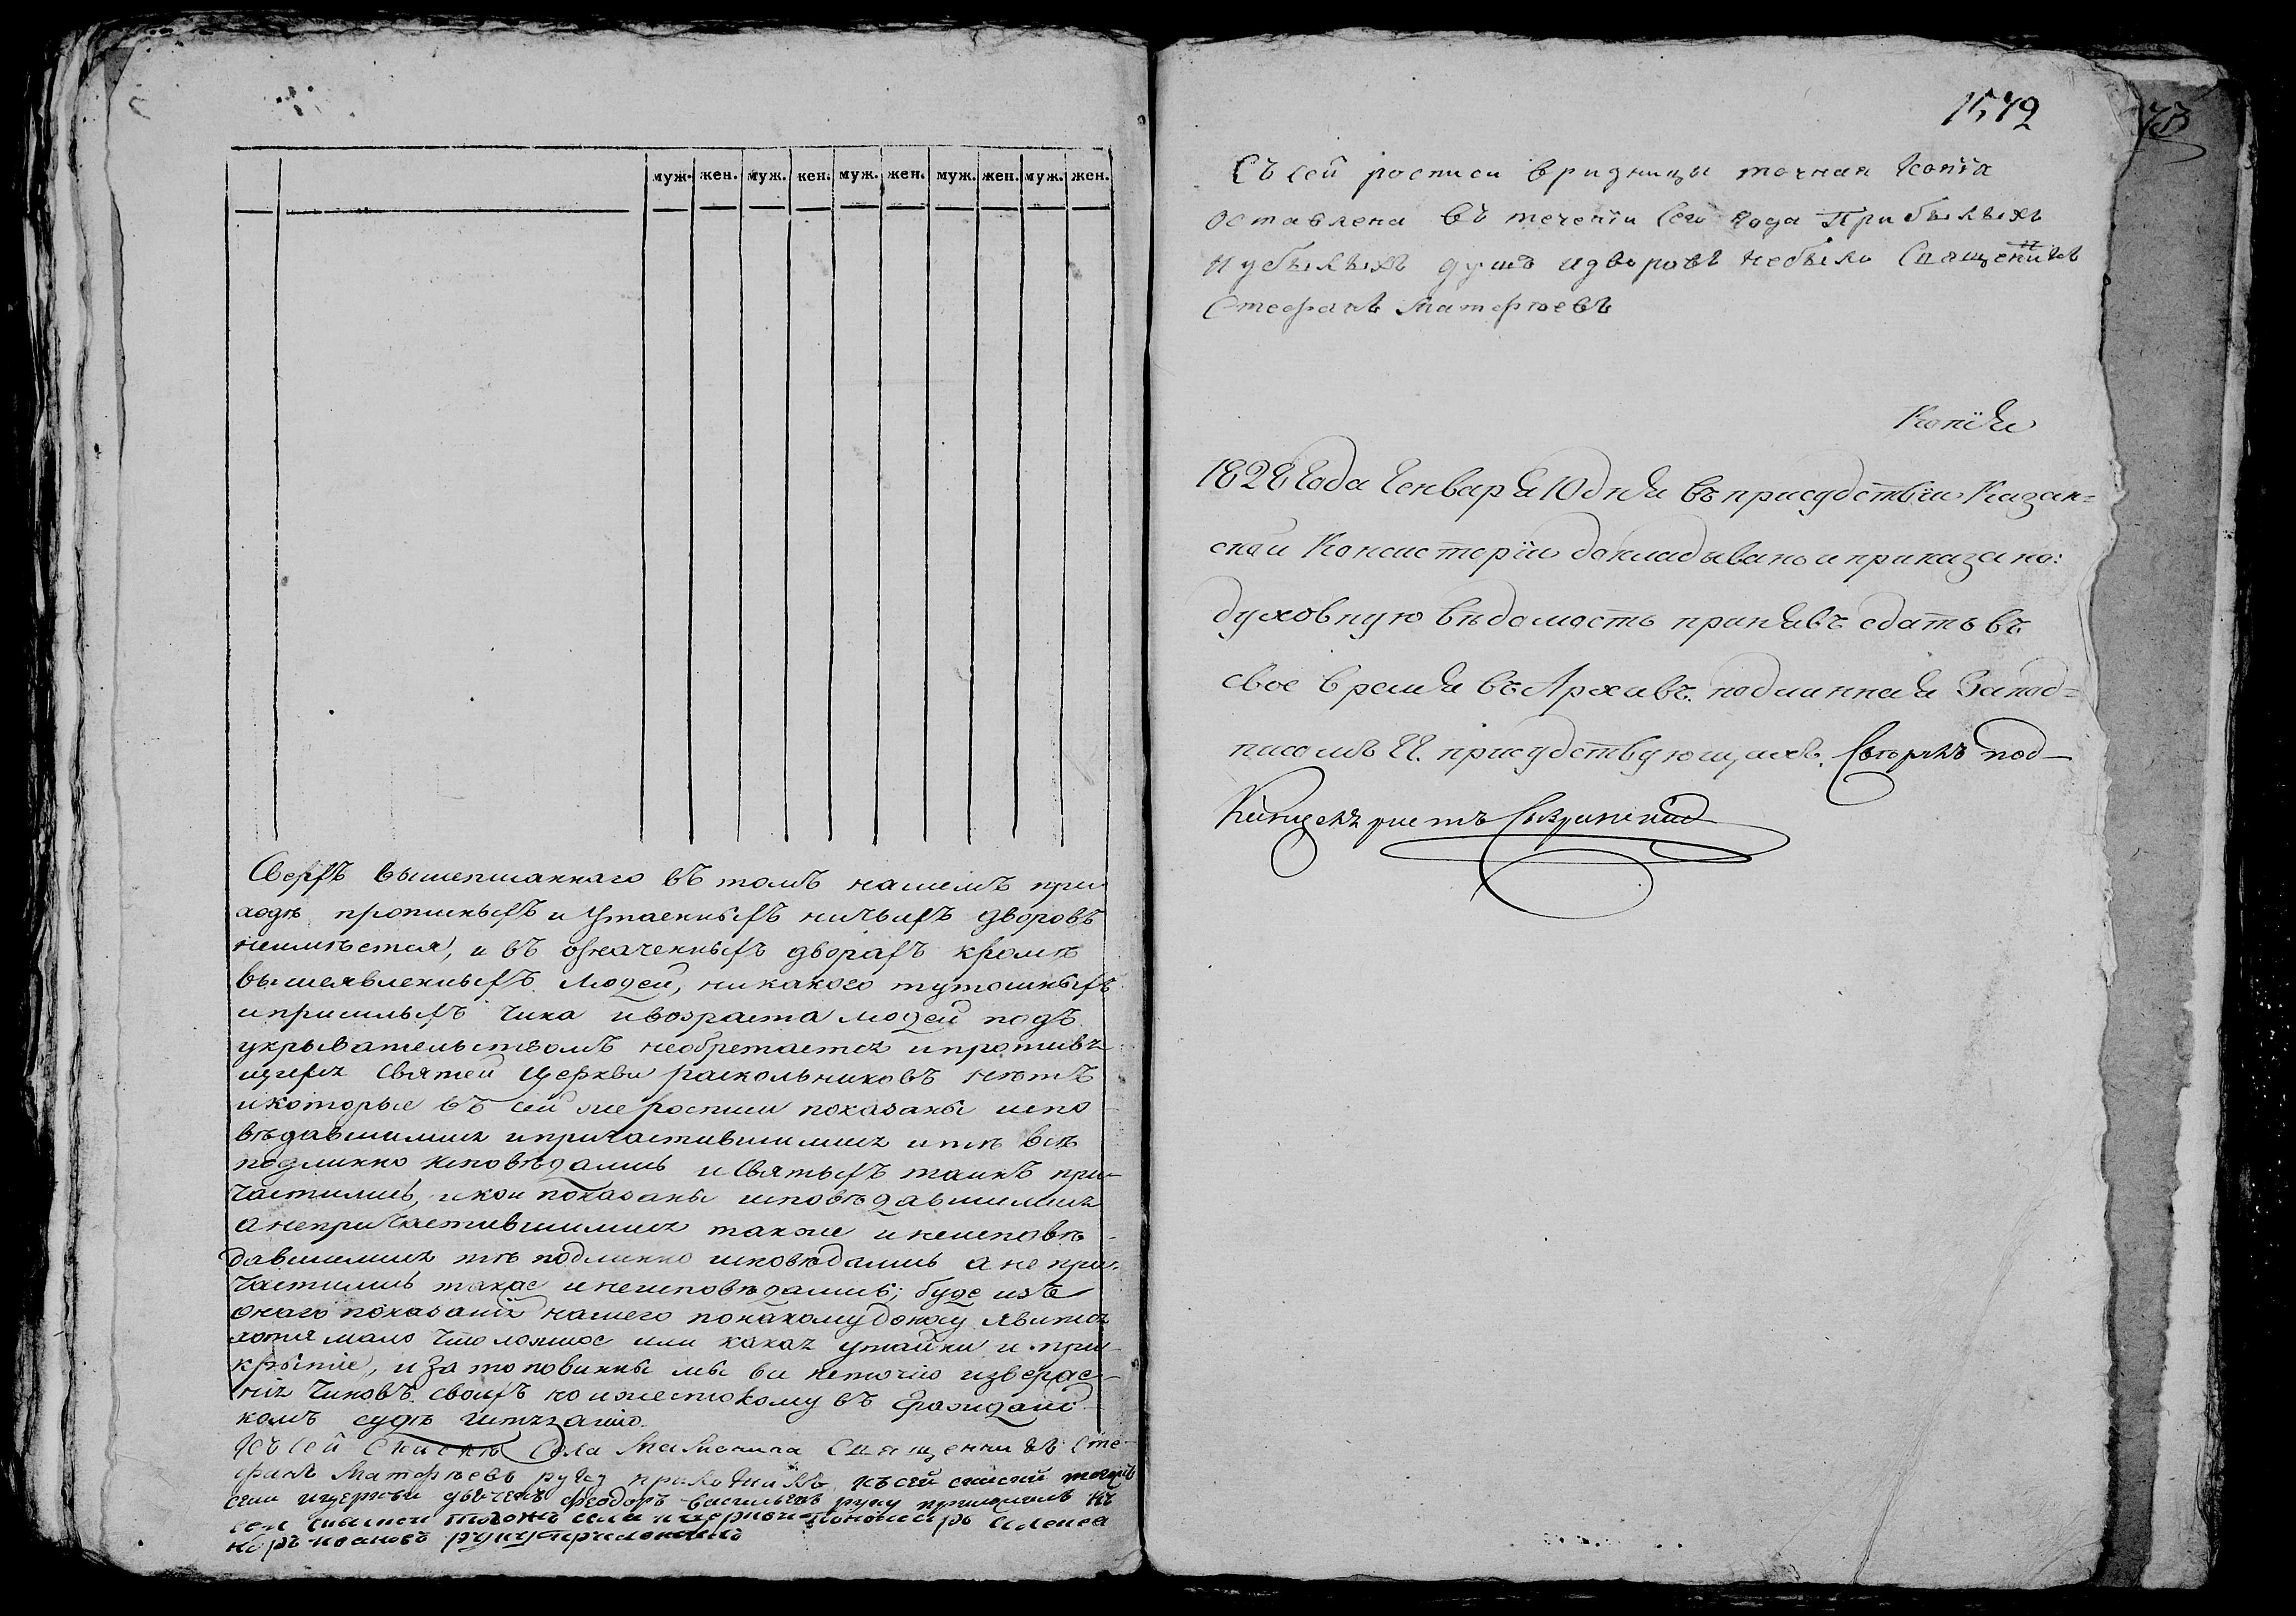 муж. жен. муж. жен. муж. жен. муж. жен. муж. жен.
Сверхъ вышеписаннаго въ томъ нашемъ при-
ходѣ прописныхъ и утаенныхъ ничьихъ дворовъ
неимѣется, и въ означенныхъ дворахъ кромѣ
вышеявленныхъ людей, никакого тутошныхъ
и пришлыхъ чина и возраста людей подъ
укрывательствомъ необретается и противъ
Святей Церкви раскольниковъ нѣтъ
и которые въ сей же росписи показаны испо
вѣдавшимися и причастившимися и тѣ всѣ
подлинно исповѣдались и Святыхъ таинъ при-
частились, и кои показаны исповѣдавшимися
а непричастившимися также и неисповѣ-
давшимися тѣ подлинно исповѣдались а не при-
частились также и неисповѣдались; буде изъ
онаго показанія нашего покакому доносу явится
хотя мало что ложное или какая утайки и при-
крытіе, и за то повинны мы вси неточію изверже-
нія чиновъ своихъ но и жестокому въ Гражданс-
комъ судѣ истязанію.
Къ сей Села Священникъ Сте-
фанъ Матфѣевъ руку приложилъ Къ сей
села и церкви дьячекъ Феодоръ Васильевъ руку приложилъ Къ
сей тогожъ села и церкви пономарь
Ивановъ руку приложилъ
1572
73
Съ сей росписи в ризницы точная Копія
оставлена въ теченіи сего года Прибылыхъ
И убылыхъ душъ и дворовъ небыло Священникъ
Стефанъ Матфѣевъ
Копія
1828 Года Генваря 10 дня въ присудствіи Казан=
ской Консисторіи докладывано и приказано:
духовную вѣдомость принявъ сдать въ
свое время въ Архивъ. подлинная Запод=
писомъ Гг. присудствующихъ. Съ под-
Канцеляристъ